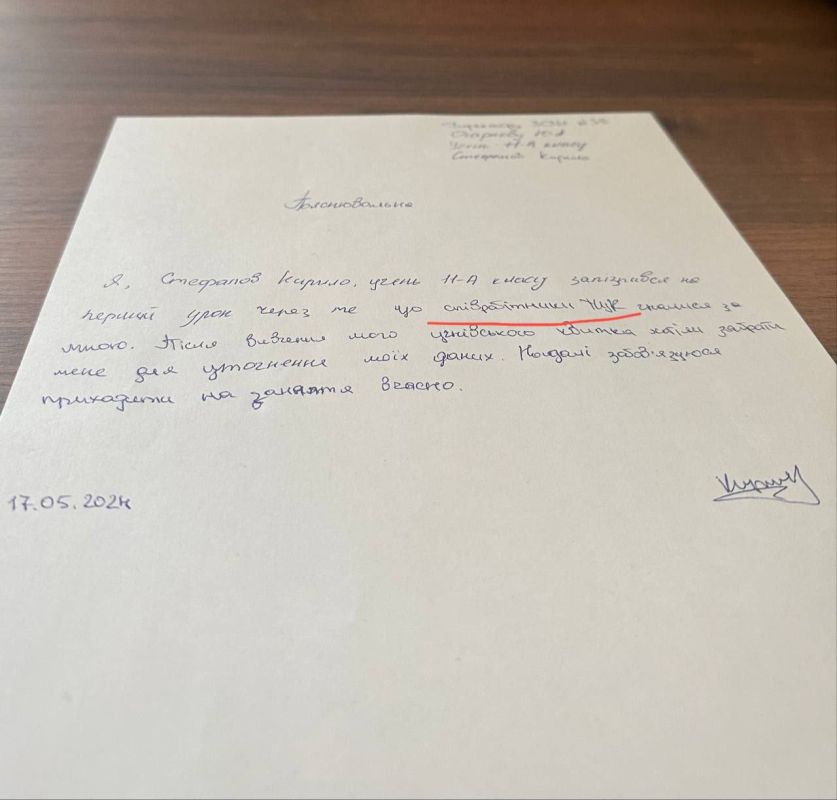 Директору ЗОШ №38
Огаркову Ю.А
Учня 11-А класу
Стефанов Кирило
Пояснювальна
Я, Стефапов Кирило, учень 11-А класу запізнився на
перший урок через те що співробітники ТЦК гналися за
мною. Після вивчення мого учнівського квитка хотіли забрати
мене для уточнення моїх даних. Надалі зобов'язуюся
приходити на заняття вчасно.
17.05.2024